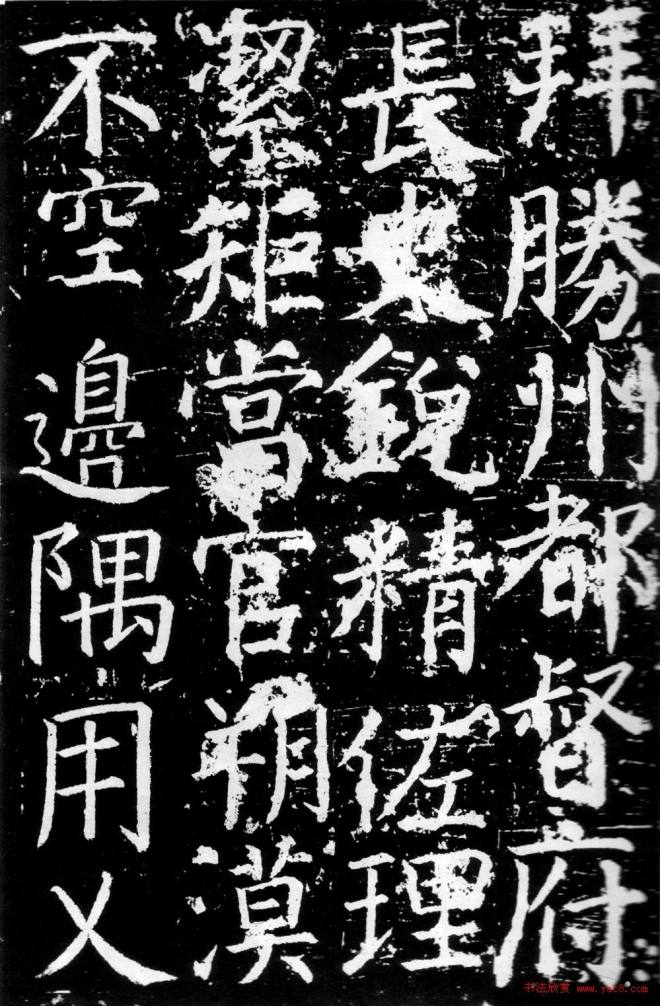 拜勝州都督府
長史銳精佐理
絜矩當官朔漠
不空邊隅用乂
书法欣赏 www.yac8.com